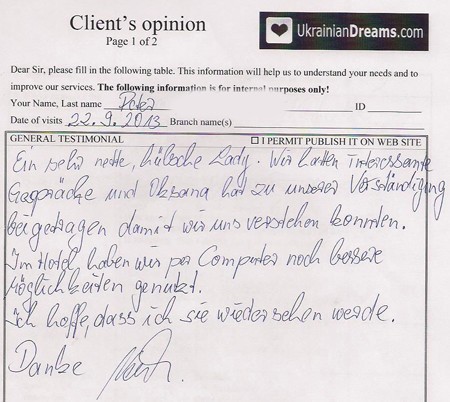 Client's opinion
Page 1 of 2
UkrainianDreams.com
Dear Sir, please fill in the following table. This information will help us to understand your needs and to
improve our services. The following information is for internal purposes only!
Your Name, Last name Peter ID
Date of visits 22.9.2013 Branch name(s)
GENERAL TESTIMONIAL ☐ I PERMIT PUBLISH IT ON WEB SITE
Ein sehr nette, hübsche Lady. Wir hatten interessante
Gespräche und Oksana hat zu unserer Verständigung
beigetragen damit wir uns verstehen konnten.
Im Hotel haben wir per Computer noch bessere
Möglichkeiten genutzt.
Ich hoffe, dass ich sie wiedersehen werde.
Danke